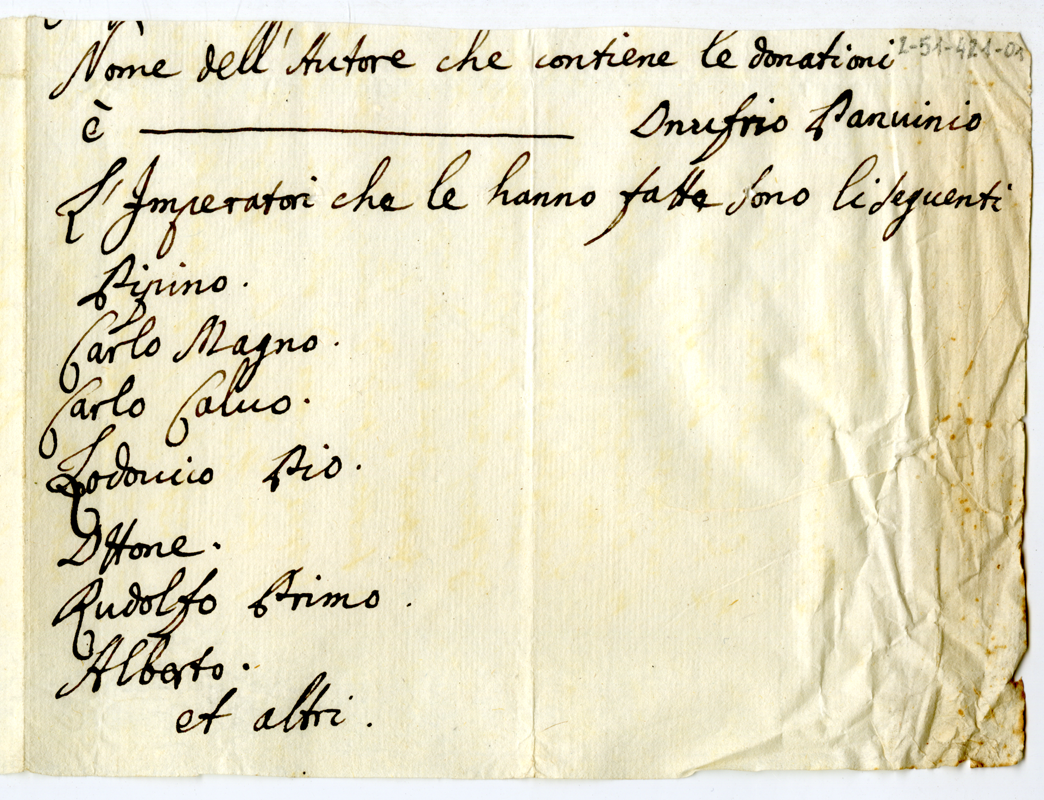 Nome dell'Autore che contiene le donationi
2-51-421-01
è ———————— Onufrio Panuinio
L'Imperatori che le hanno fatte sono li seguenti
Pipino.
Carlo Magno.
Carlo Caluo.
Lodouico Pio.
Ottone.
Rudolfo Primo.
Alberto.
et altri.